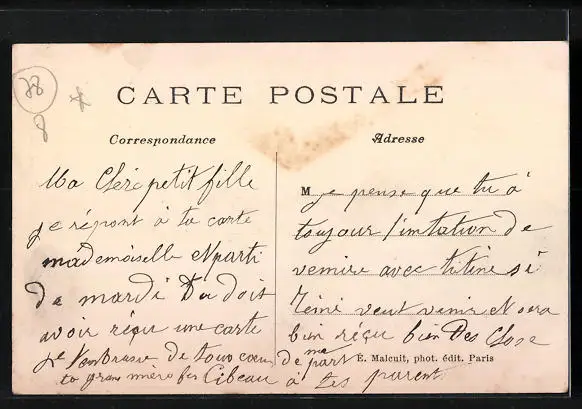 78
8
CARTE POSTALE
Correspondance
Adresse
Ma Chére petit fille
je répont à ta carte
mademoiselle Nparti
de mardi Tu doit
avoir réçu une carte
je Vembrasse de tous coeur
ta gran mère
Cibeau
M je pense que tu à
toujour l'imtation de
venire avec titine si
Rémi veut venir
bien réçu bien Des Chose
de me part
à tes parent
E. Malcuit, phot. édit. Paris